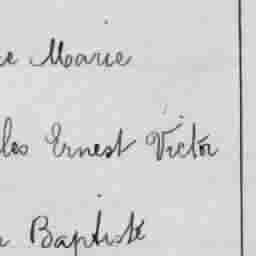 Marie
les Ernest Victor
Baptiste